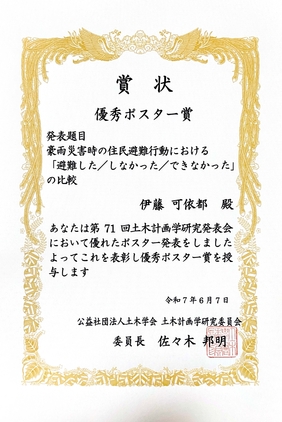 賞状
優秀ポスター賞
発表題目
豪雨災害時の住民避難行動における
「避難した／しなかった／できなかった」
の比較
伊藤 可依都 殿
あなたは第 71 回土木計画学研究発表会
において優れたポスター発表をしました
よってこれを表彰し優秀ポスター賞を授
与します
令和７年６月７日
公益社団法人土木学会 土木計画学研究委員会
委員長 佐々木 邦明